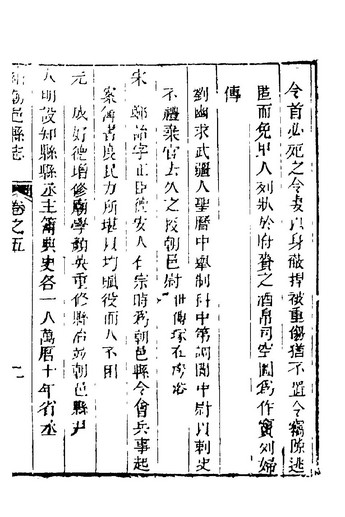 令首必死之令妻以身蔽捍被重傷猶不置令竊隙逃
匿而免中人列狀於府賚之酒帛司空圖爲作竇列婦
傳
劉幽求武疆人聖曆中舉制科中第調閬中尉以刺史
不禮棄官去久之授朝邑尉 世傳塚在商洛
宋 鄭詒字正臣德安人仁宗時爲朝邑縣令會兵事起
案簿書度民力所堪以均賦役而人不困
元 成好德增修廟學 英重修縣治竝朝邑縣尹
大明設知縣縣丞主簿典史各一人萬曆十年省丞
朝邑縣志 卷之五